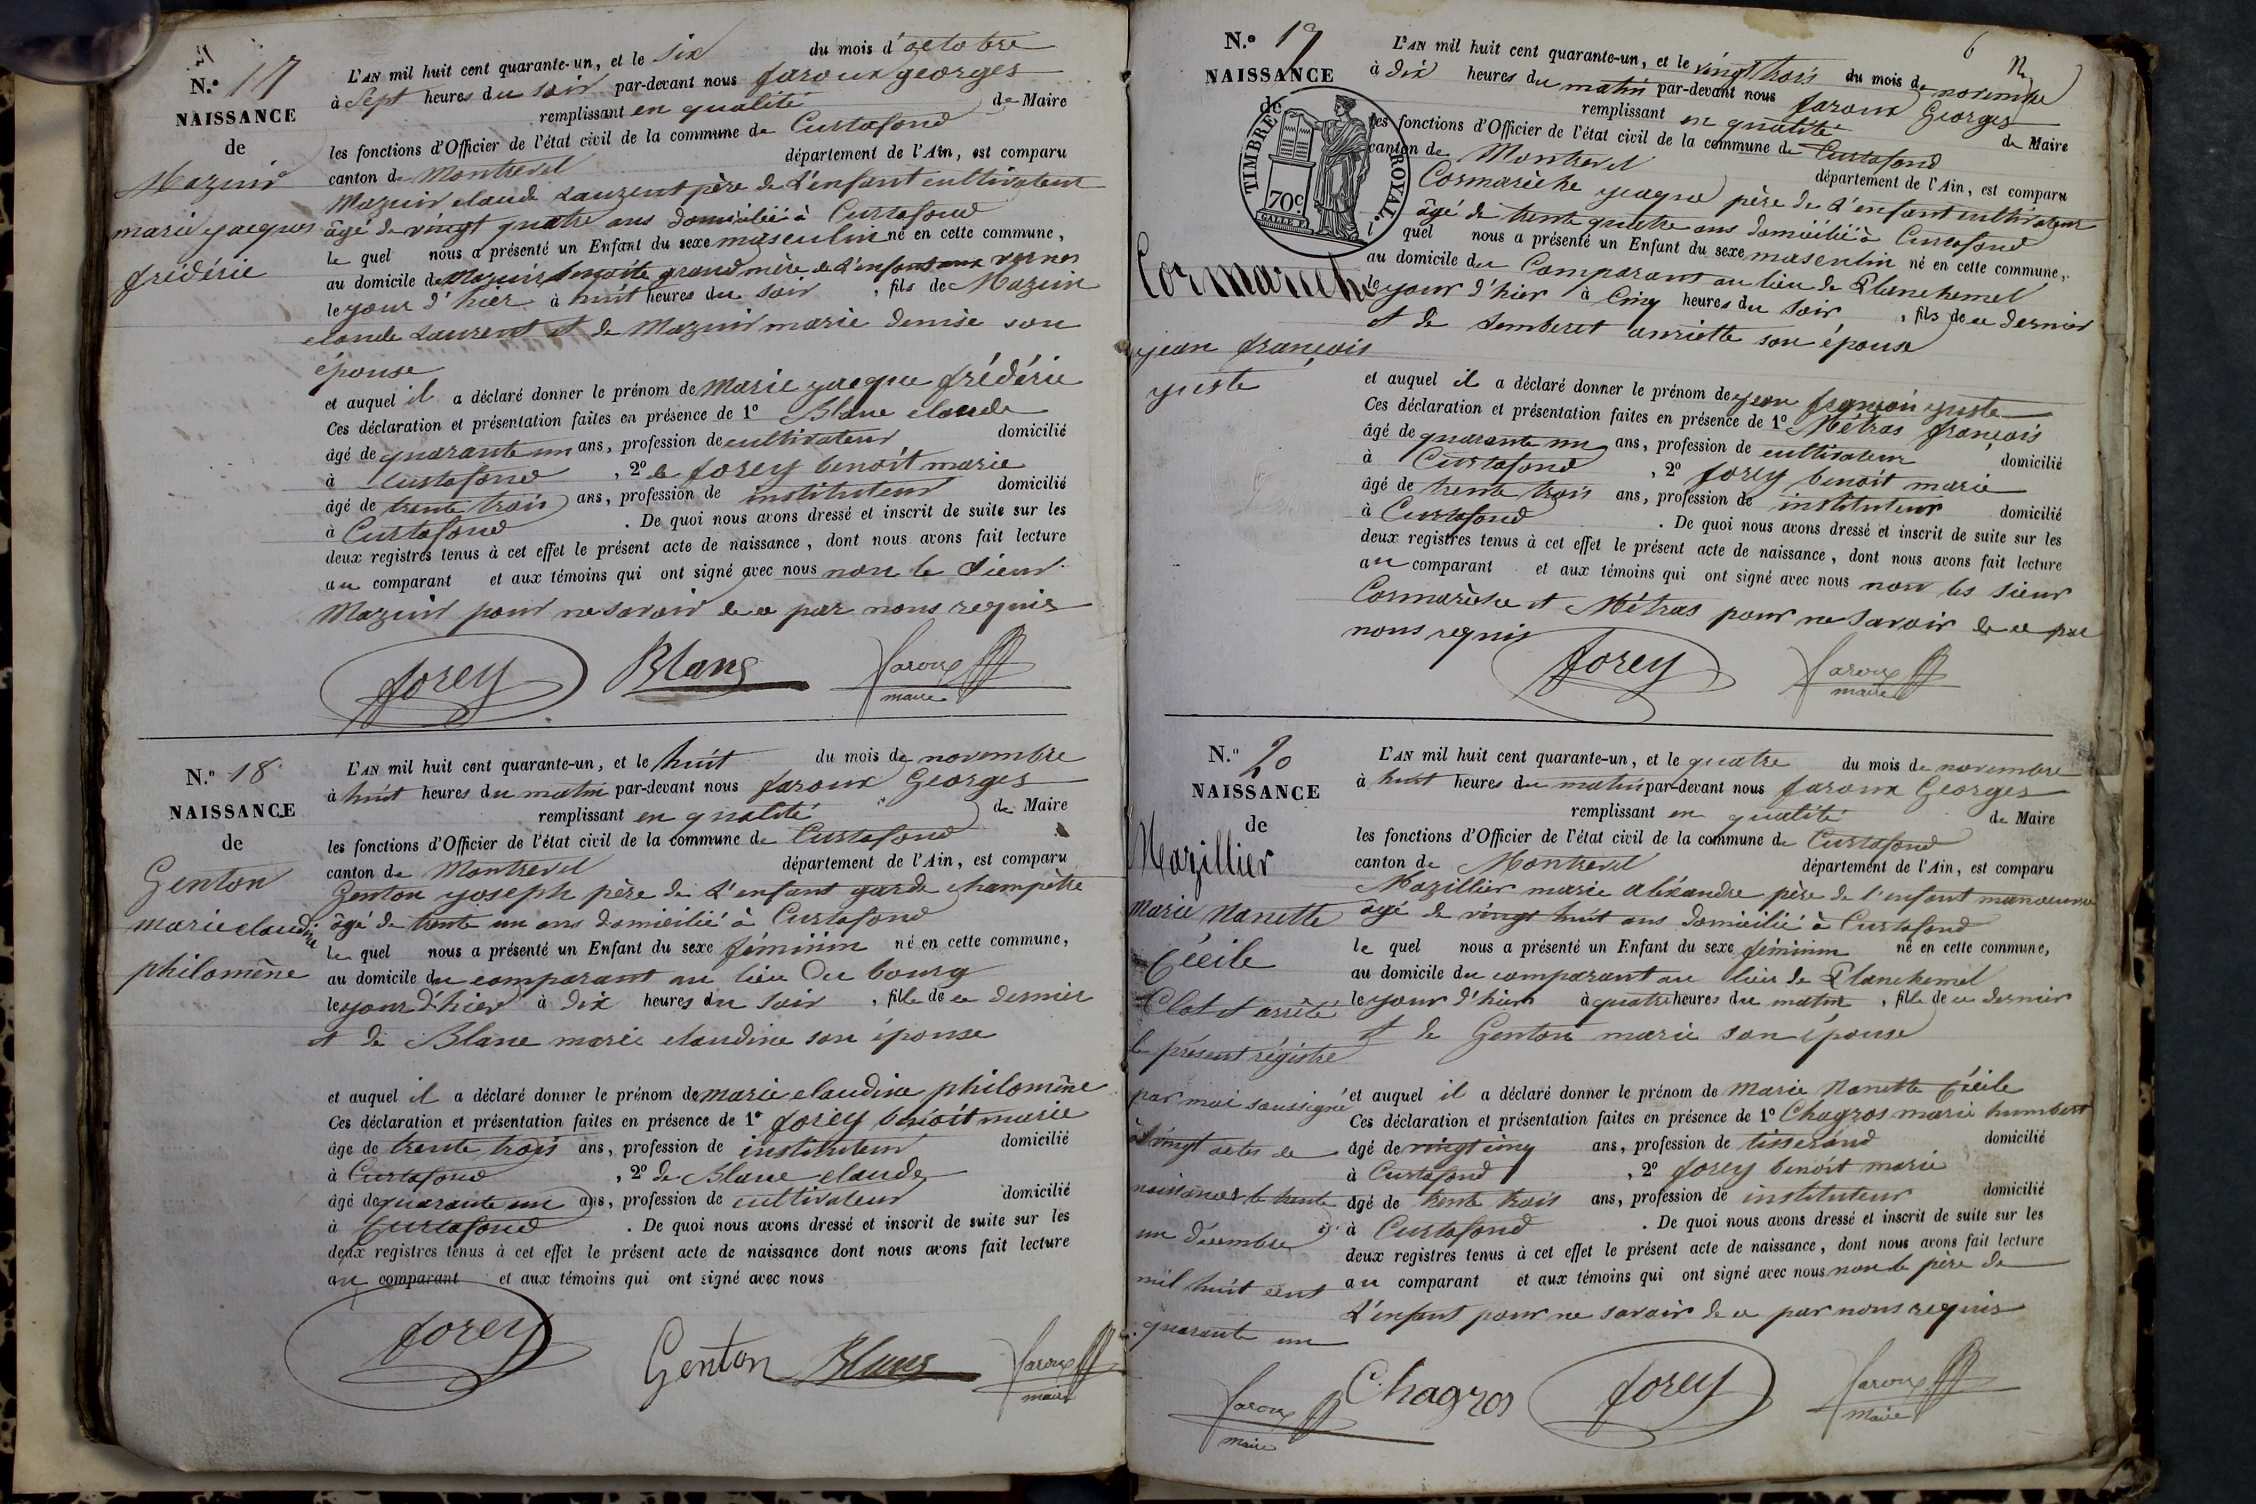 N.º 17
NAISSANCE
de
Mazuir
marie jacques
frédéric
L'AN mil huit cent quarante-un, et le six du mois d'octobre
à Sept heures du soir par-devant nous faroux georges
remplissant en qualité de Maire
les fonctions d'Officier de l'état civil de la commune de Curtafond
canton de Montrevel département de l'Ain, est comparu
Mazuir claude Laurent père de L'enfant cultivateur
âgé de vingt quatre ans domicilié à Curtafond
le quel nous a présenté un Enfant du sexe masculin né en cette commune,
au domicile de Mazuir benoite grand mère de L'enfant aux
le jour d'hier à huit heures du soir, fils de Mazuir
claude Laurent et de Mazuir marie denise son
épouse
et auquel il a déclaré donner le prénom de Marie jacque frédéric
Ces déclaration et présentation faites en présence de 1º Blanc claude
âgé de quarante un ans, profession de cultivateur domicilié
à Curtafond, 2º forey benoit marie
âgé de trente trois ans, profession de instituteur domicilié
à Curtafond. De quoi nous avons dressé et inscrit de suite sur les
deux registres tenus à cet effet le présent acte de naissance, dont nous avons fait lecture
au comparant et aux témoins qui ont signé avec nous non le Sieur
Mazuir pour ne savoir de ce par nous requis
forey Blanc faroux
maire
N.º 18
NAISSANCE
de
Genton
marie claudine
philomène
L'AN mil huit cent quarante-un, et le huit du mois de novembre
à huit heures du matin par-devant nous faroux Georges
remplissant en qualité de Maire
les fonctions d'Officier de l'état civil de la commune de Curtafond
canton de Montrevel département de l'Ain, est comparu
Genton joseph père de L'enfant garde champêtre
âgé de trente un ans domicilié à Curtafond
le quel nous a présenté un Enfant du sexe féminin né en cette commune,
au domicile du comparant au lieu Du bourg
le jour d'hier à dix heures du soir, fille de ce dernier
et de Blanc marie claudine son épouse
et auquel il a déclaré donner le prénom de marie claudine philomène
Ces déclaration et présentation faites en présence de 1º forey benoit marie
âgé de trente trois ans, profession de instituteur domicilié
à Curtafond, 2º de Blanc claude
âgé de quarante un ans, profession de cultivateur domicilié
à Curtafond. De quoi nous avons dressé et inscrit de suite sur les
deux registres tenus à cet effet le présent acte de naissance dont nous avons fait lecture
au comparant et aux témoins qui ont signé avec nous
forey Genton Blanc faroux
maire
6
N.º 19
NAISSANCE
de
TIMBRE ROYAL.
70c
Cormarèche
jean françois
juste
L'AN mil huit cent quarante-un, et le vingt trois du mois de novembre
à dix heures du matin par-devant nous faroux Georges
remplissant en qualité de Maire
les fonctions d'Officier de l'état civil de la commune de Curtafond
canton de Montrevel département de l'Ain, est comparu
Cormarèche jaque père de L'enfant cultivateur
âgé de trente quatre ans domicilié à Curtafond
l quel nous a présenté un Enfant du sexe masculin né en cette commune,
au domicile du Comparant au lieu de Planchemel
le jour d'hier à Cinq heures du soir, fils de ce dernier
et de Lemberet anriette son épouse
et auquel il a déclaré donner le prénom de jean françois juste
Ces déclaration et présentation faites en présence de 1º Métras françois
âgé de quarante un ans, profession de cultivateur domicilié
à Curtafond, 2º forey benoit marie
âgé de trente trois ans, profession de instituteur domicilié
à Curtafond. De quoi nous avons dressé et inscrit de suite sur les
deux registres tenus à cet effet le présent acte de naissance, dont nous avons fait lecture
au comparant et aux témoins qui ont signé avec nous non les sieur
Cormarèche et Métras pour ne savoir de ce par
nous requis
forey faroux
maire
N.º 20
NAISSANCE
de
Mazillier
marie Nanette
Cécile
Clos et arrêté
le présent régistre
par moi soussigné
à vingt actes de
naissances le trente
un décembre
mil huit cent
quarante un
faroux
maire
L'AN mil huit cent quarante-un, et le quatre du mois de novembre
à huit heures du matin par-devant nous faroux Georges
remplissant en qualité de Maire
les fonctions d'Officier de l'état civil de la commune de Curtafond
canton de Montrevel département de l'Ain, est comparu
Mazillier marie aléxandre père de l'enfant manoeuvre
âgé de vingt huit ans domicilié à Curtafond
le quel nous a présenté un Enfant du sexe féminin né en cette commune,
au domicile du comparant au lieu de Planchemel
le jour d'hier à quatre heures du matin, fille de ce dernier
et de Genton marie son épouse
et auquel il a déclaré donner le prénom de Marie Nanette Cécile
Ces déclaration et présentation faites en présence de 1º Chagros marie humbert
âgé de vingt cinq ans, profession de tisserand domicilié
à Curtafond, 2º forey benoit marie
âgé de trente trois ans, profession de instituteur domicilié
à Curtafond. De quoi nous avons dressé et inscrit de suite sur les
deux registres tenus à cet effet le présent acte de naissance, dont nous avons fait lecture
au comparant et aux témoins qui ont signé avec nous non le père de
L'enfant pour ne savoir de ce par nous requis
Chagros forey faroux
Maire